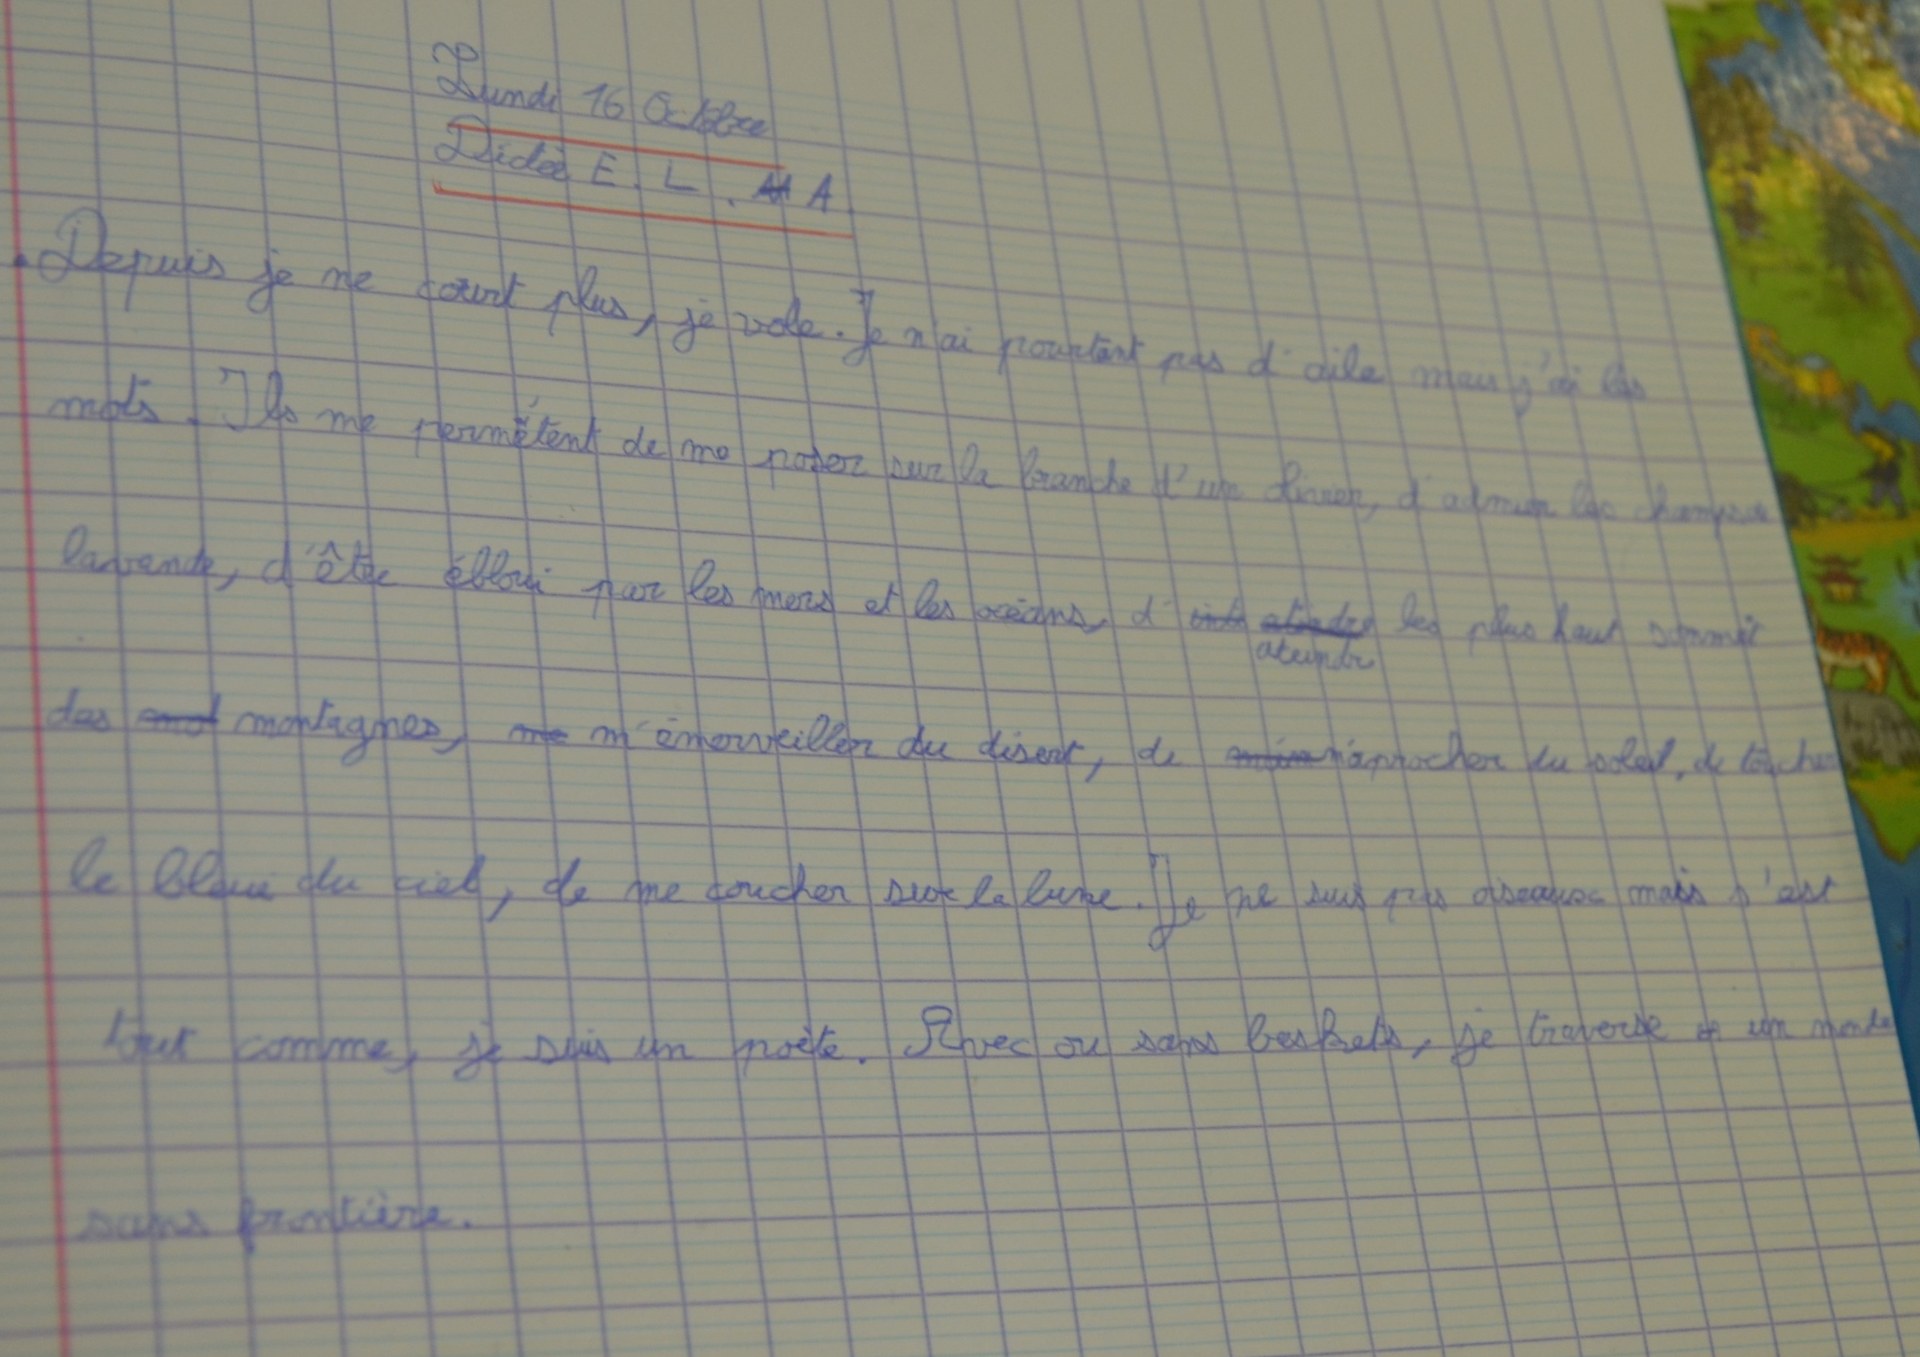 Lundi 16 Octobre
Dictée E. L. A
Depuis je ne court plus, je vole. Je n'ai pourtant pas d'aile mais j'ai les
mots. Ils me permétent de me poser sur la branche d'un olivier, d'admirer les champs de
lavande, d'être ébloui par les mers et les océans, d' ateindre les plus haut sommet
des montagnes, m'émerveiller du désert, de m'aprocher du soleil, de toucher
le bleu du ciel, de me coucher sur la lune. Je ne suis pas oiseaux mais s'est
tout comme, je suis un poète. Avec ou sans baskets, je traverse un monde
sans frontière.